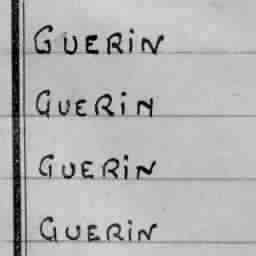 GUERiN
GUERiN
GUERiN
GUERiN